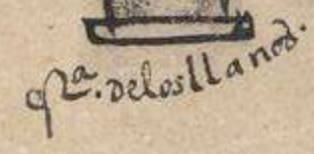 qta. delosllanos.